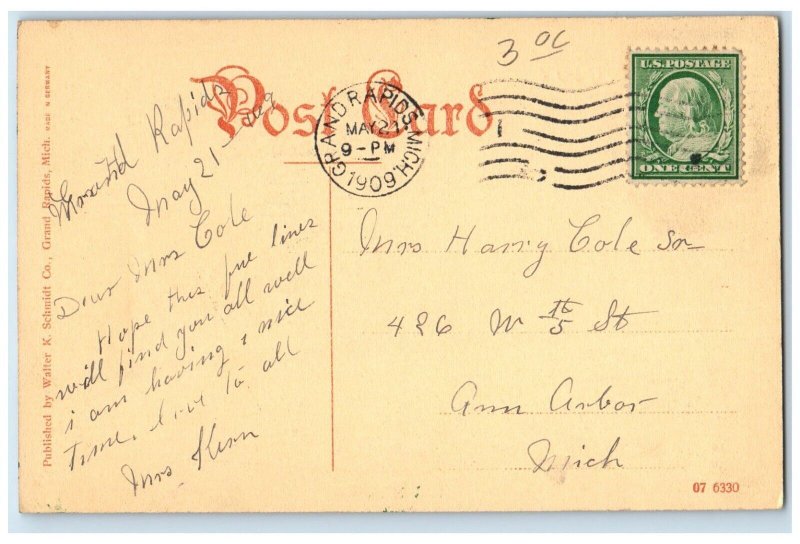 Post Card.
3 oc
GRAND RAPIDS, MICH.
MAY 21
9-PM
1909
U.S. POSTAGE
ONE CENT
Published by Walter K. Schmidt Co., Grand Rapids, Mich. MADE IN GERMANY
Grand Rapids
May 21 - 09
Dear Mrs Cole
Hope this few lines
will find you all well
i am having a nice
time, love to all
Mrs Kern
Mrs Harry Cole Sr
426 W 5th St
Ann Arbor
Mich
07 6330